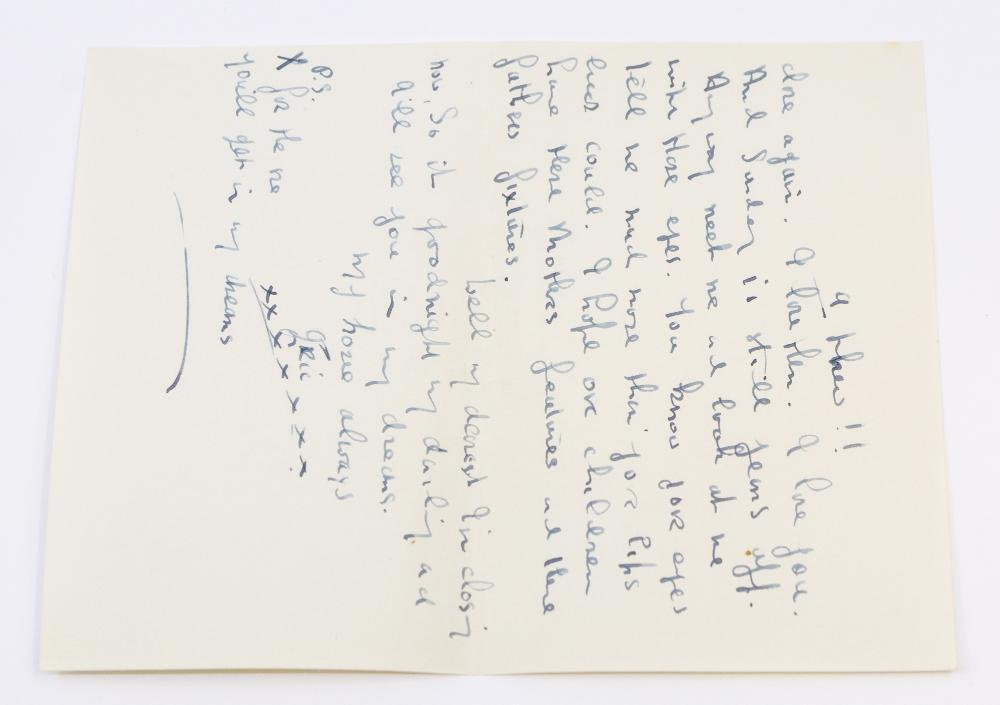 4 thew!!
close again. I love them. I love you.
And Sunday is still years off.
Anyway meet me and look at me
with those eyes. You know your eyes
tell me much more than your lips
ever could. I hope our children
have there Mothers features and there
fathers fixtures.
Well my dearest I'm closing
now, So it goodnight my darling and
I'll see you in my dreams.
My love always
Eric
xx x x x x x.
P.S.
X for the one
youll get in my dreams